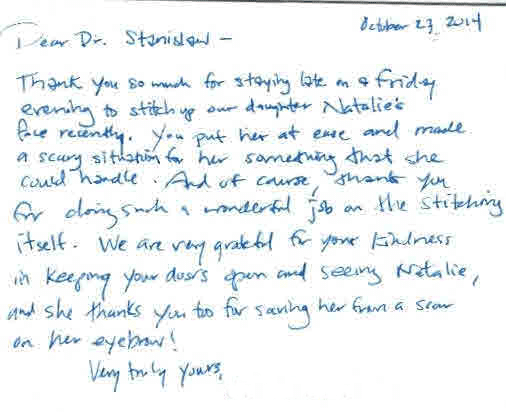 October 23, 2014
Dear Dr. Stanislaw -
Thank you so much for staying late on a Friday
evening to stitch up our daughter Natalie's
face recently. You put her at ease and made
a scary situation for her something that she
could handle. And of course, thank you
for doing such a wonderful job on the stitching
itself. We are very grateful for your kindness
in keeping your doors open and seeing Natalie,
and she thanks you too for saving her from a scar
on her eyebrow!
Very truly yours,